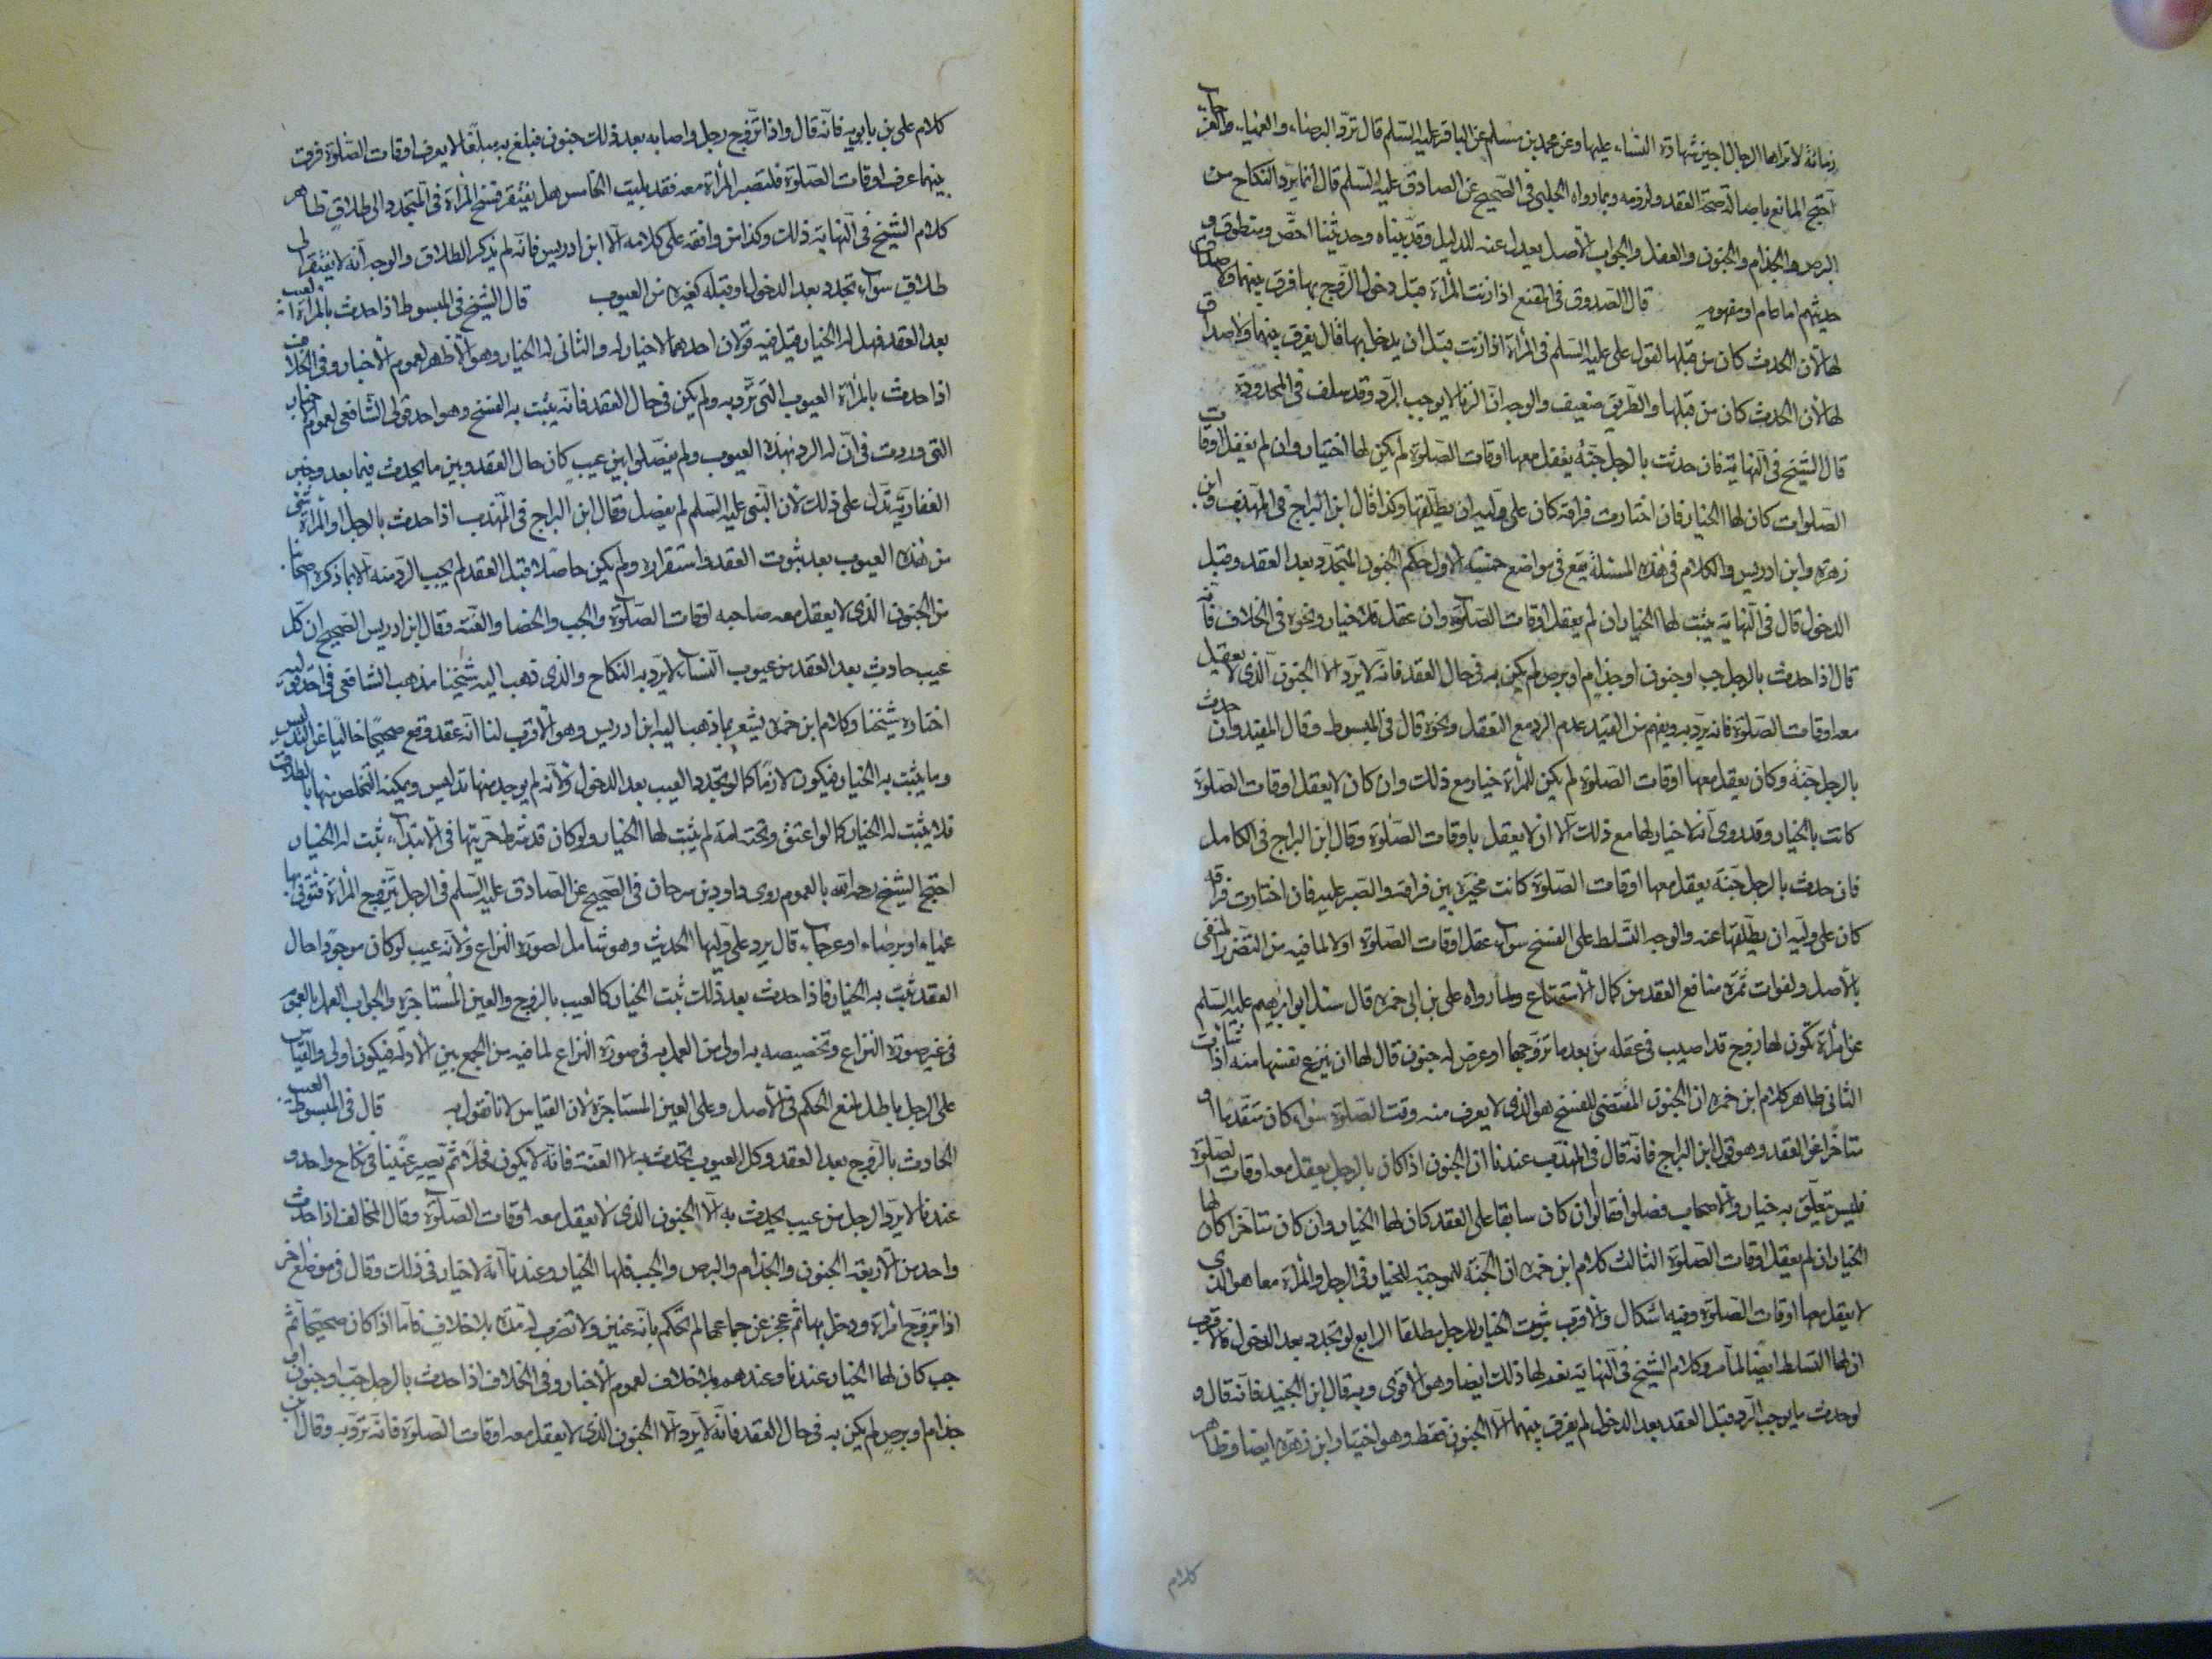 زمانة لا تراها الرجال اجيز شهادة النساء عليها وعن محمد بن مسلم عن الباقر عليه السلم قال ترد البرصاء والعمياء والعرجاء
احتج المانع باصالة صحة العقد ولزومه وبما رواه الحلبي في الصحيح عن الصادق عليه السلم قال انما يرد النكاح من
البرص والجذام والجنون والعفل والجواب الاصل يعدل عنه للدليل وقد بيناه وحديثنا اخص ومنطوق و
حديثهم اما عام او مفهوم قال الصدوق في المقنع اذا زنت المرأة قبل دخول الزوج بها فرق بينهما ولا صداق
لها لان الحدث كان من قبلها لقول علي عليه السلم في المرأة اذا زنت قبل ان يدخل بها قال يفرق بينهما ولا صداق
لها لان الحدث كان من قبلها والطريق ضعيف والوجه ان الزنا لا يوجب الرد وقد سلف في المحدودة
قال الشيخ في النهاية فان حدثت بالرجل جنة يعقل معها اوقات الصلوة لم يكن لها اختيار وان لم يعقل اوقات
الصلوات كان لها الخيار فان اختارت فراقه كان على وليه ان يطلقها وكذا قال ابن البراج في المهذب وابن
زهرة وابن ادريس والكلام في هذه المسئلة يقع في مواضع خمسة الاول حكم الجنون المتجدد بعد العقد وقبل
الدخول قال في النهاية يثبت لها الخيار ان لم يعقل اوقات الصلوة وان عقل فلا خيار ونحوه في الخلاف فانه
قال اذا حدث بالرجل جب او جنون او جذام او برص لم يكن به في حال العقد فانه لا يرد الا الجنون الذي لا يعقل
معه اوقات الصلوة فانه يرد به ويفهم من القيد عدم الرد مع التعقل ونحوه قال في المبسوط وقال المفيد وان حدث
بالرجل جنة وكان يعقل معها اوقات الصلوة لم يكن للمرأة خيار مع ذلك وان كان لا يعقل اوقات الصلوة
كانت بالخيار وقد روى انه لا خيار لها مع ذلك الا ان لا يعقل باوقات الصلوة وقال ابن البراج في الكامل
فان حدث بالرجل جنة يعقل معها اوقات الصلوة كانت مخيرة بين فراقه والصبر عليه فان اختارت فراقه
كان على وليه ان يطلقها عنه والوجه التسلط على الفسخ سواء عقل اوقات الصلوة او لا لما فيه من التضرر المنفي
بالاصل ولفوات ثمرة منافع العقد من كمال الاستمتاع ولما رواه علي بن ابي حمزة قال سئل ابو ابرهيم عليه السلم
عن امرأة تكون لها زوج قد اصيب في عقله من بعد ما تزوجها او عرض له جنون قال لها ان تنزع نفسها منه اذا شاءت
الثاني ظاهر كلام ابن حمزة ان الجنون المقتضى للفسخ هو الذي لا يعرف منه وقت الصلوة سواء كان متقدما او
متاخرا عن العقد وهو قول ابن البراج فانه قال في المهذب عندنا ان الجنون اذا كان بالرجل يعقل معه اوقات الصلوة
فليس تعلق به خيار والاصحاب فصلوا فقالوا ان كان سابقا على العقد كان لها الخيار وان كان متاخرا كان لها
الخيار ان لم يعقل اوقات الصلوة الثالث كلام ابن حمزة ان الجنة الموجبة للخيار في الرجل والمرأة معا هو الذي
لا يعقل معها اوقات الصلوة وفيه اشكال والاقرب ثبوت الخيار للرجل مطلقا الرابع لو تجدد بعد الدخول فالاقرب
ان لها التسلط ايضا لما مر وكلام الشيخ في النهاية يفيد لها ذلك ايضا وهو الاقوى وبه قال ابن الجنيد فانه قال و
لو حدث ما يوجب الرد قبل العقد بعد الدخول لم يفرق بينهما الا الجنون فقط وهو اختيار ابن زهرة ايضا وظاهر
كلام
كلام علي بن بابويه فانه قال واذا تزوج رجل واصابه بعد ذلك جنون فبلغ به مبلغا لا يعرف اوقات الصلوة فرق
بينهما عرف اوقات الصلوة فلتصبر المرأة معه فقد بليت الخامس هل يفتقر فسخ المرأة في المتجدد الى طلاق ظاهر
كلام الشيخ في النهاية ذلك وكذا من وافقه على كلامه الا ابن ادريس فانه لم يذكر الطلاق والوجه انه لا يفتقر الى
طلاق سواء تجدد بعد الدخول او قبله كغيره من العيوب قال الشيخ في المبسوط اذا حدث بالمرأة العيب
بعد العقد فهل له الخيار قيل فيه قولان احدهما لا خيار له والثاني له الخيار وهو الاظهر لعموم الاخبار وفي الخلاف
اذا حدث بالمرأة العيوب التي ترد به ولم يكن في حال العقد فانه يثبت به الفسخ وهو احد قولي الشافعي لعموم الاخبار
التي وردت في ان له الرد بهذه العيوب ولم يفصلوا بين عيب كان حال العقد وبين ما يحدث فيما بعد وخبر
الغفارية تدل على ذلك لان النبي عليه السلم لم يفصل وقال ابن البراج في المهذب اذا حدث بالرجل او المرأة شئ
من هذه العيوب بعد ثبوت العقد واستقراره ولم يكن حاصلا قبل العقد لم يجب الرد منه الا بما ذكره اصحابنا
من الجنون الذي لا يعقل معه صاحبه اوقات الصلوة والجب والخصا والعنة وقال ابن ادريس الصحيح ان كل
عيب حادث بعد العقد من عيوب النساء لا يرد به النكاح والذي ذهب اليه شيخنا مذهب الشافعي في احد قوليه
اختاره شيخنا وكلام ابن حمزة يشعر بما ذهب اليه ابن ادريس وهو الاقرب لنا انه عقد وقع صحيحا خاليا عن التدليس
وما يثبت به الخيار فيكون لازما كما لو تجدد العيب بعد الدخول ولانه لم يوجد منها تدليس ويمكنه التخلص منها بالطلاق
فلا يثبت له الخيار كما لو اعتق وتحته امة لم يثبت لها الخيار ولو كان قد شرط حريتها في الابتداء ثبت له الخيار
احتج الشيخ رحمه الله بالعموم روى داود بن سرحان في الصحيح عن الصادق عليه السلم في الرجل يتزوج المرأة فتؤتى بها
عمياء او برصاء او عرجاء قال يرد على وليها الحديث وهو شامل لصورة النزاع ولانه عيب لو كان موجودا حال
العقد ثبت به الخيار فاذا حدث بعد ذلك ثبت الخيار كالعيب بالزوج والعين المستاجرة والجواب العمل بالعموم
في غير صورة النزاع وتخصيصه به اولى من العمل به في صورة النزاع لما فيه من الجمع بين الادلة فيكون اولى والقياس
على الرجل باطل لمنع الحكم في الاصل وعلى العين المستاجرة لان القياس لا نقول به قال في المبسوط العيب
الحادث بالزوج بعد العقد وكل العيوب تحدث به الا العنة فانه لا يكون فحلا ثم يصير عنينا في نكاح واحد و
عندنا لا يرد الرجل من عيب يحدث به الا الجنون الذي لا يعقل معه اوقات الصلوة وقال المخالف اذا حدث
واحد من الاربعة الجنون والجذام والبرص والجب فلها الخيار وعندنا انه لا خيار في ذلك وقال في موضع اخر
اذا تزوج امرأة ودخل بها ثم عجز عن جماعها لم تحكم بانه عنين ولا تضرب له مدة بلا خلاف فاما اذا كان صحيحا ثم
جب كان لها الخيار عندنا وعندهم بلا خلاف لعموم الاخبار وفي الخلاف اذا حدث بالرجل جب او جنون او
جذام او برص لم يكن به في حال العقد فانه لا يرد الا الجنون الذي لا يعقل معه اوقات الصلوة فانه ترد به وقال ابن